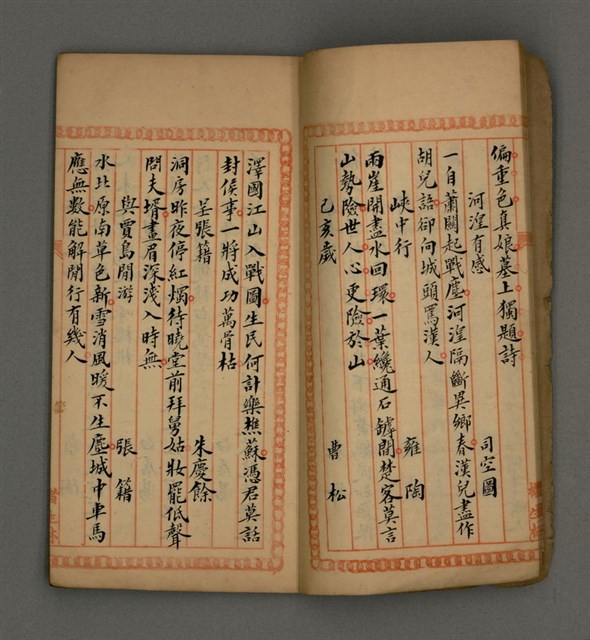 偏重色真娘墓上獨題詩
河湟有感 司空圖
一自蕭關起戰塵河湟隔斷異鄉春漢兒盡作
胡兒語卻向城頭罵漢人
峽中行 雍陶
兩崖開盡水回環一葉纔通石罅間楚客莫言
山勢險世人心更險於山
己亥歲 曹松
澤國江山入戰圖生民何計樂樵蘇憑君莫話
封侯事一將成功萬骨枯
呈張籍 朱慶餘
洞房昨夜停紅燭待曉堂前拜舅姑妝罷低聲
問夫壻畫眉深淺入時無
與賈島閒游 張籍
水北原南草色新雪消風暖不生塵城中車馬
應無數能解閒行有幾人